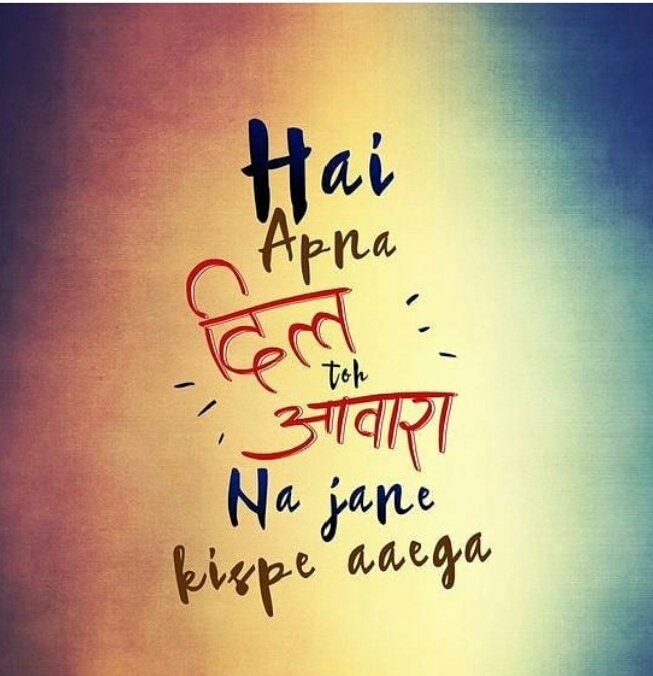 Hai
Apna
दिल
toh
आवारा
Na jane
kispe aaega